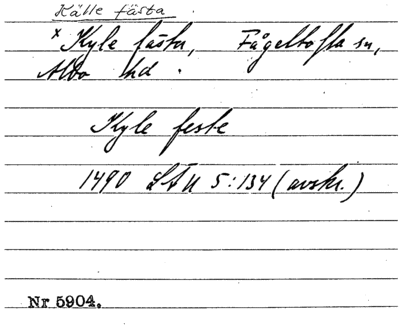 Källe fästa
x Kyle fästa, Fågeltofta sn,
Albo hd.
Kyle feste
1490 LÅU 5:134 (avskr.)
Nr 5904.